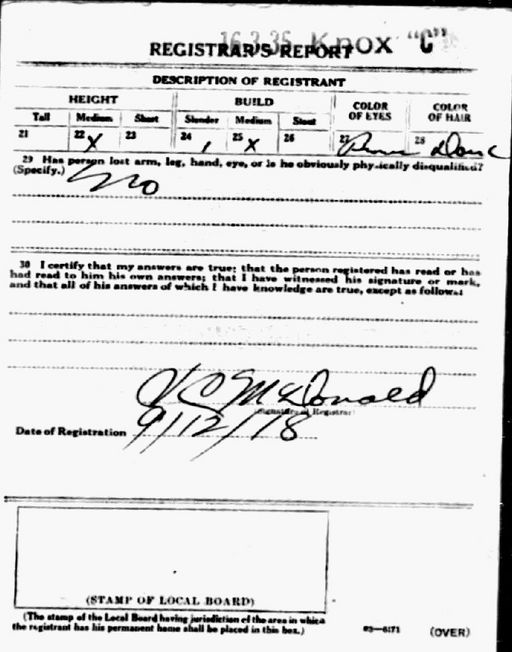 16-3-35 Knox "C"
REGISTRAR'S REPORT
DESCRIPTION OF REGISTRANT
HEIGHT BUILD COLOR OF EYES COLOR OF HAIR
Tall Medium Short Slender Medium Stout
21 22 X 23 24 25 X 26 27 28
29 Has person lost arm, leg, hand, eye, or is he obviously physically disqualified?
(Specify.) No
30 I certify that my answers are true; that the person registered has read or has
had read to him his own answers; that I have witnessed his signature or mark,
and that all of his answers of which I have knowledge are true, except as follows:
McDonald
(Signature of Registrar)
Date of Registration 9/12/18
(STAMP OF LOCAL BOARD)
(The stamp of the Local Board having jurisdiction of the area in which
the registrant has his permanent home shall be placed in this box.)
03—6171 (OVER)